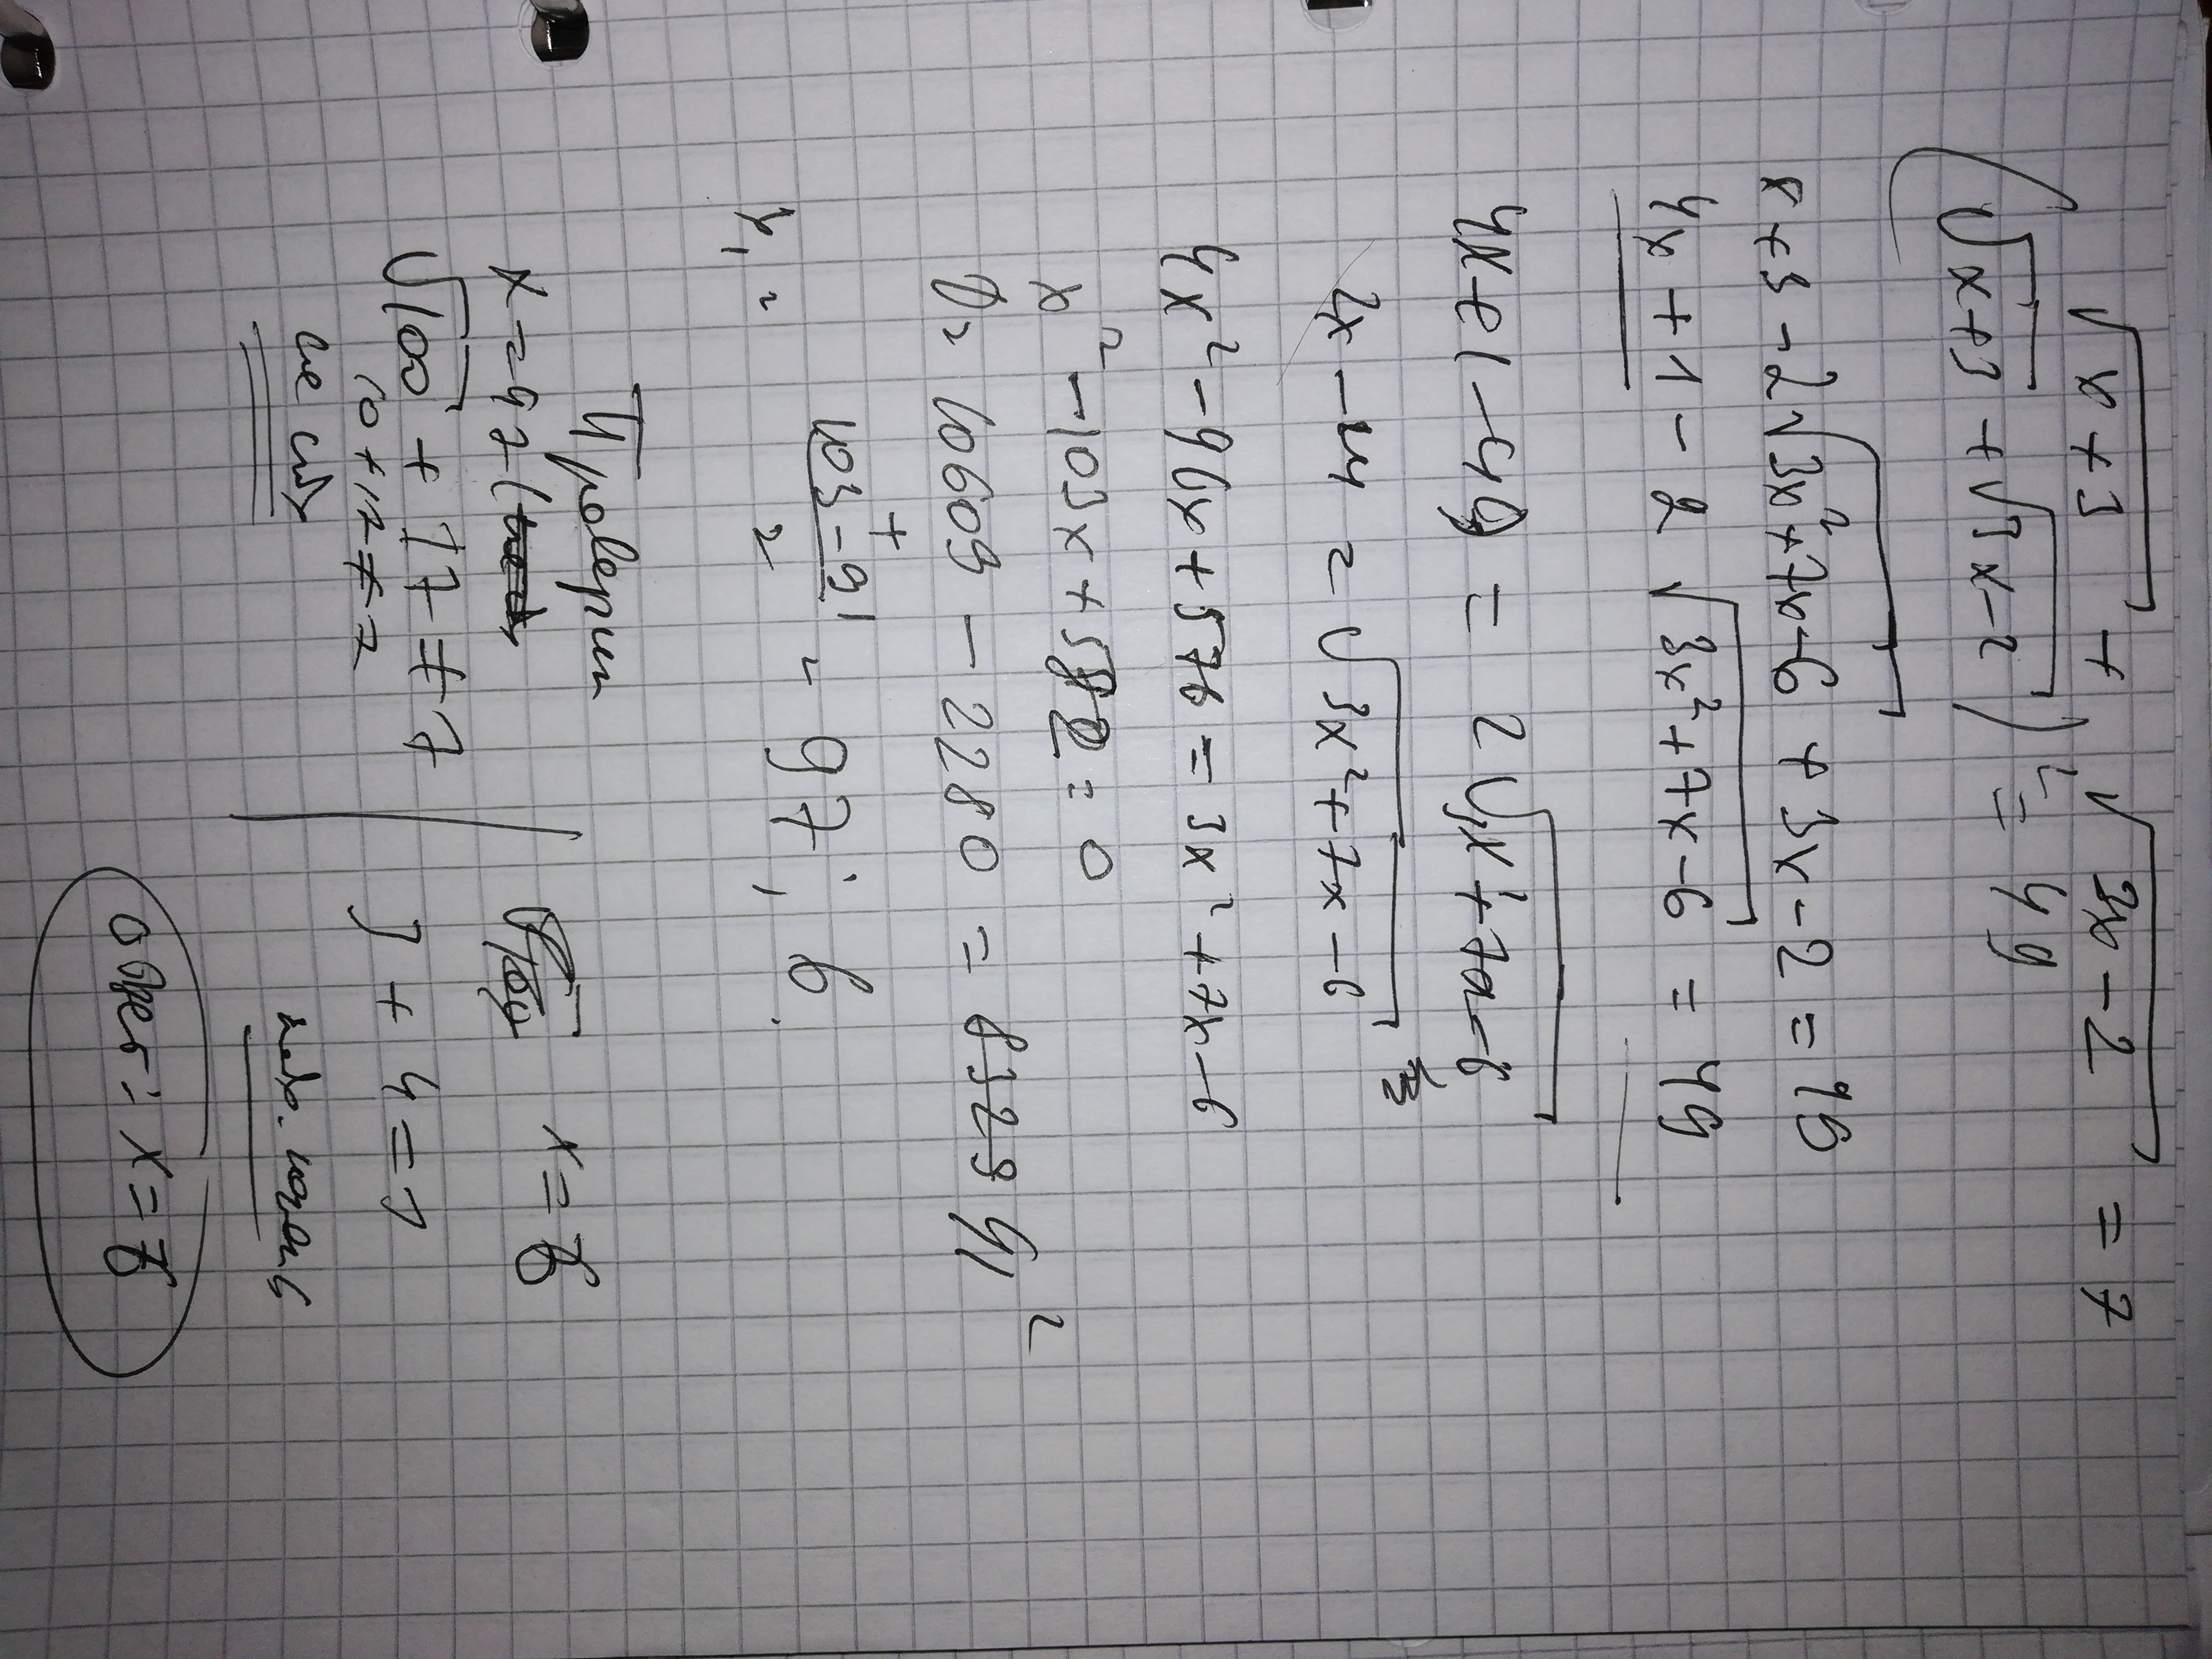 √x+3 + √3x-2 = 7
(√x+3 + √3x-2)² = 49
x+3-2√3x²+7x-6 + 3x-2 = 49
4x+1-2√3x²+7x-6 = 49
4x+1-49 = 2√3x²+7x-6
2x-24 = √3x²+7x-6
4x²-96x+576 = 3x²+7x-6
x²-103x+582 = 0
D= 10609 - 2280 = 8329 91²
x₁ = 103+-91 / 2 = 97; 6.
Проверим
x=97
√100 + 17 ≠ 7
10+17≠7
x=6
3+4=7
Ответ: x=6